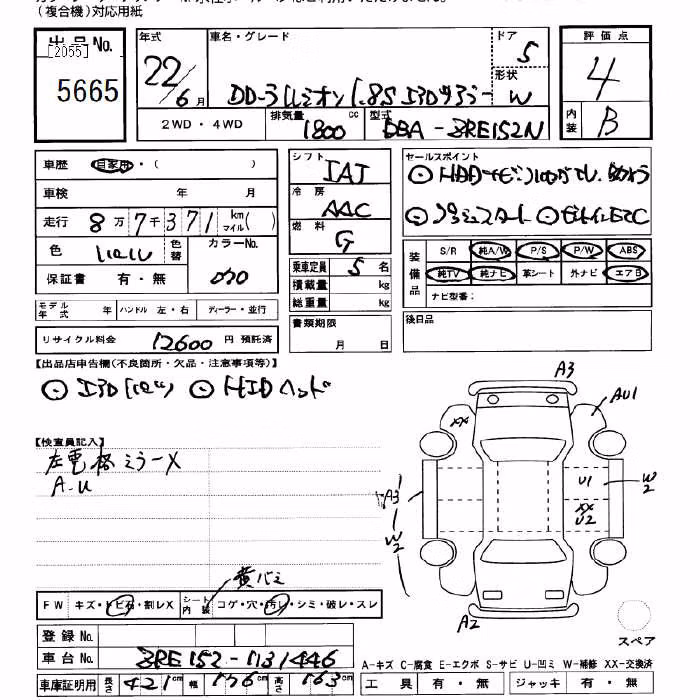 (複合機)対応用紙
出品No.
[2055]
5665
年式
22/6月
車名・グレード
1.8S
ドア
5
形状
W
評価点
4
内装
B
2WD・4WD
排気量
1800cc
型式
DBA-ZRE152N
車歴
自家用・( )
車検 年 月
走行 8万7千371 km マイル( )
色
色替
カラーNo.
070
保証書 有・無
モデル年式 年 ハンドル 左・右 ディーラー・並行
リサイクル料金 12600円 預託済
シフト
IAT
冷房
AAC
燃料
G
乗車定員 5名
積載量 kg
総重量 kg
書類期限
月 日
セールスポイント
○HDDナビ
○プッシュスタート ○ビルトインETC
装備品
S/R 純A/W P/S P/W ABS
純TV 純ナビ 革シート 外ナビ エアB
ナビ型番:
後日品
【出品店申告欄(不良箇所・欠品・注意事項等)】
○HIDヘッド
【検査員記入】
左電格ミラーX
A-U
A3
AU1
XX
U1
W2
XX
U2
A3
W2
A2
黄バミ
FW キズ・トビ石・割レX
シート内装 コゲ・穴・汚レ・シミ・破レ・スレ
登録No.
車台No. ZRE152-1131446
車庫証明用 長さ 421cm 幅 176cm 高さ 163cm
スペア
A-キズ C-腐食 E-エクボ S-サビ U-凹ミ W-補修 XX-交換済
工具 有・無 ジャッキ 有・無